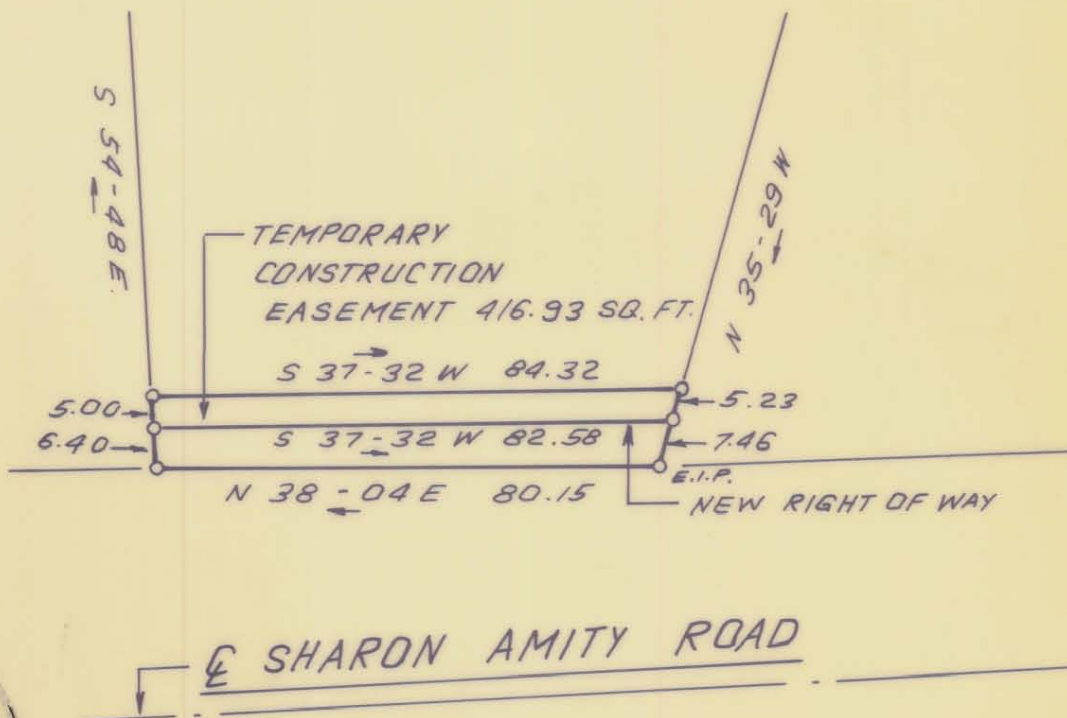 S 54-48 E.
N 35-29 W
TEMPORARY
CONSTRUCTION
EASEMENT 416.93 SQ. FT.
S 37-32 W 84.32
5.00
5.23
S 37-32 W 82.58
6.40
7.46
E.I.P.
N 38-04 E 80.15
NEW RIGHT OF WAY
℄ SHARON AMITY ROAD